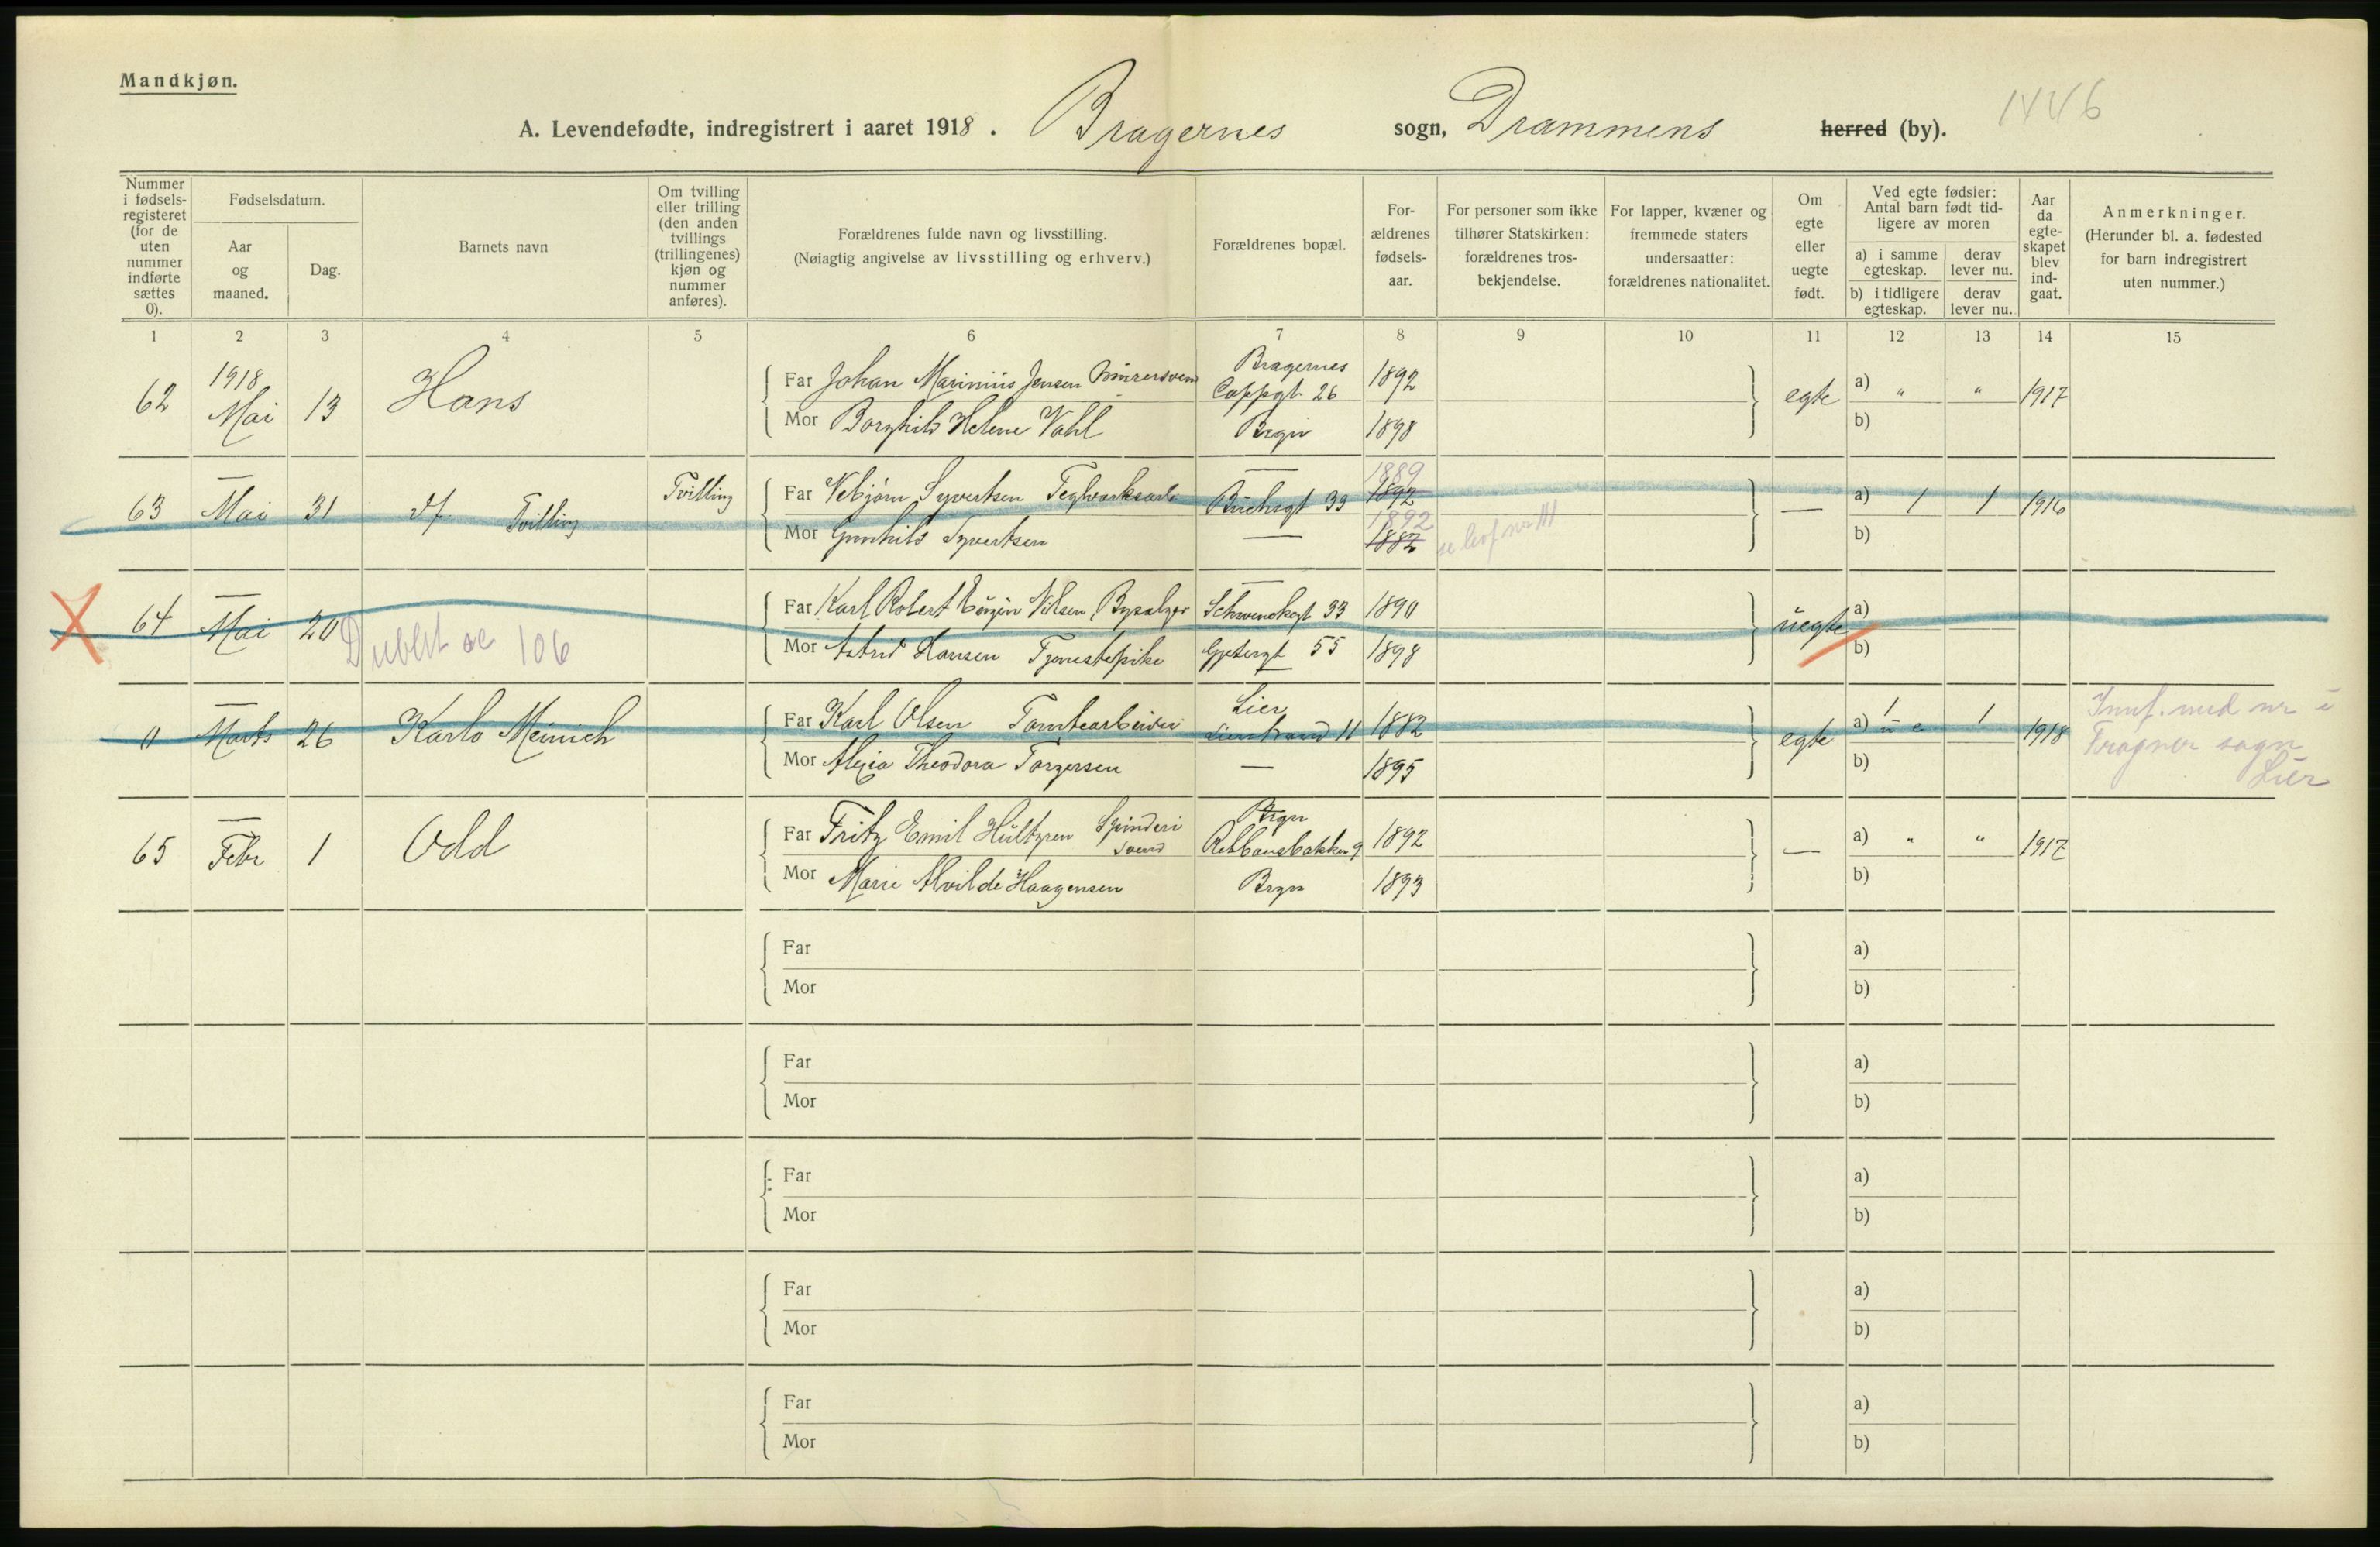 Mandkjøn.
1446
A. Levendefødte, indregistrert i aaret 1918. Bragernes sogn, Drammens herred (by).
Nummer i fødsels-registeret (for de uten nummer indførte sættes 0).
Fødselsdatum.
Aar og maaned.
Dag.
Barnets navn
Om tvilling eller trilling (den anden tvillings (trillingenes) kjøn og nummer anføres).
Forældrenes fulde navn og livsstilling.
(Nøiagtig angivelse av livsstilling og erhverv.)
Forældrenes bopæl.
For-ældrenes fødsels-aar.
For personer som ikke tilhører Statskirken: forældrenes tros-bekjendelse.
For lapper, kvæner og fremmede staters undersaatter: forældrenes nationalitet.
Om egte eller uegte født.
Ved egte fødsler: Antal barn født tid-ligere av moren
a) i samme egteskap.
derav lever nu.
b) i tidligere egteskap.
derav lever nu.
Aar da egte-skapet blev ind-gaat.
Anmerkninger.
(Herunder bl. a. fødested for barn indregistrert uten nummer.)
1 2 3 4 5 6 7 8 9 10 11 12 13 14 15
62 1918 Mai 13 Hans
Far Johan Marinius Jensen Murersvend Bragernes Cappgt. 26 1892 egte a) " " 1917
Mor Borghild Helene Vahl Brgn 1898 b)
63 — Mai 31 Tvilling Tvilling
Far Vebjørn Syvertsen Teglverksarb — Buchsgt 33 1889 1892 — a) 1 1 1916
Mor Gunhild Syvertsen — 1892 1882 b)
64 — Mai 20 Dublet se 106
Far Karl Robert Eugen Nilsen, Bysælger — Schwenckegt 33 1890 uegte a)
Mor Astrid Hansen Tjenestepike Gjetergt 55 1898 b)
0 — Marts 26 Karlo Meinich
Far Karl Olsen Tomtearbeider Lier Lierstrand 11 1882 egte a) 1 u e 1 1918 Innf. med nr i
Mor Alexia Theodora Torgersen — 1895 b) Frogner sogn Lier
65 — Febr 1 Odd
Far Fritz Emil Hultgren Spinderi svend Brgn Rebbansbakken 9 1892 — a) " " 1917
Mor Marie Alvilde Haagensen Brgn 1893 b)
Far a)
Mor b)
Far a)
Mor b)
Far a)
Mor b)
Far a)
Mor b)
Far a)
Mor b)